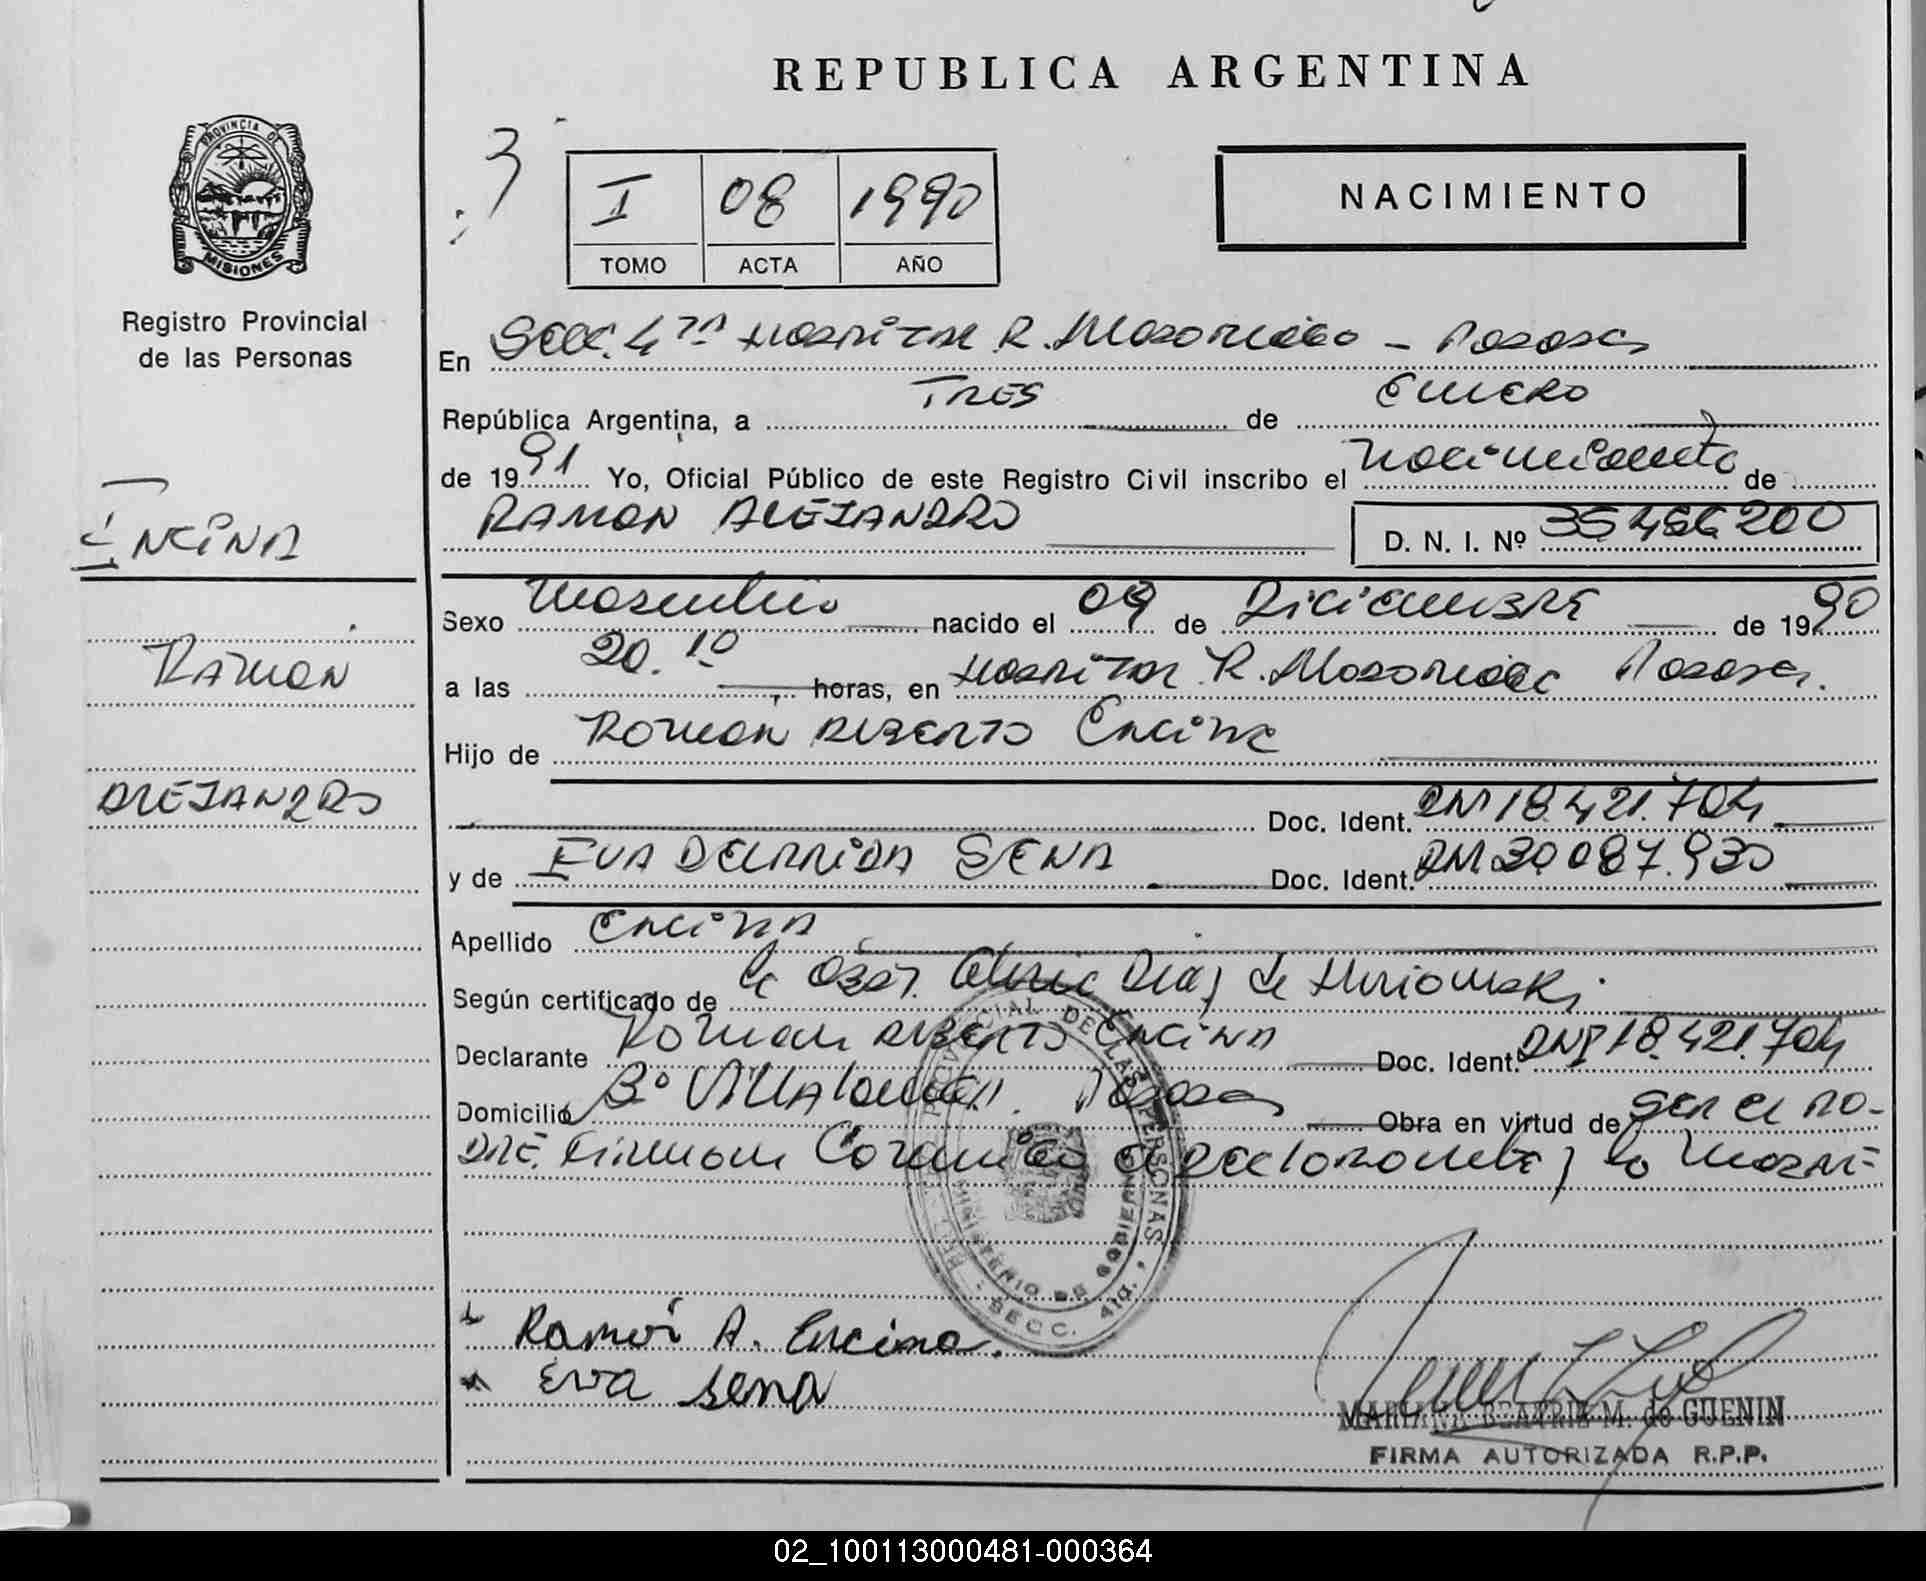 REPUBLICA ARGENTINA
PROVINCIA DE
MISIONES
Registro Provincial
de las Personas
3
I 08 1990
TOMO ACTA AÑO
NACIMIENTO
En Secc. 4ta Hospital R. Madariaga - Posadas
República Argentina, a Tres de Enero
de 1991 Yo, Oficial Público de este Registro Civil inscribo el Nacimiento de
RAMON ALEJANDRO D. N. I. Nº 35456200
ENCINA
RAMON
ALEJANDRO
Sexo Masculino nacido el 09 de Diciembre de 1990
a las 20.10 horas, en Hospital R. Madariaga Posadas.
Hijo de Ramon Alberto Encina
Doc. Ident. DNI 18.421.704
y de EVA SENA Doc. Ident. DNI 30.087.930
Apellido Encina
Según certificado de la Obst. Diaz de
Declarante Ramon Alberto Encina Doc. Ident. DNI 18.421.704
Domicilio Bº Posadas Obra en virtud de Ser el pa-
dre. Firman el declarante y la madre
PROVINCIAL DE LAS PERSONAS
MINISTERIO DE GOBIERNO
SECC. 4ta.
Ramón A. Encina.
Eva Sena
MARIANA BEATRIZ M. de GUENIN
FIRMA AUTORIZADA R.P.P.
02_100113000481-000364